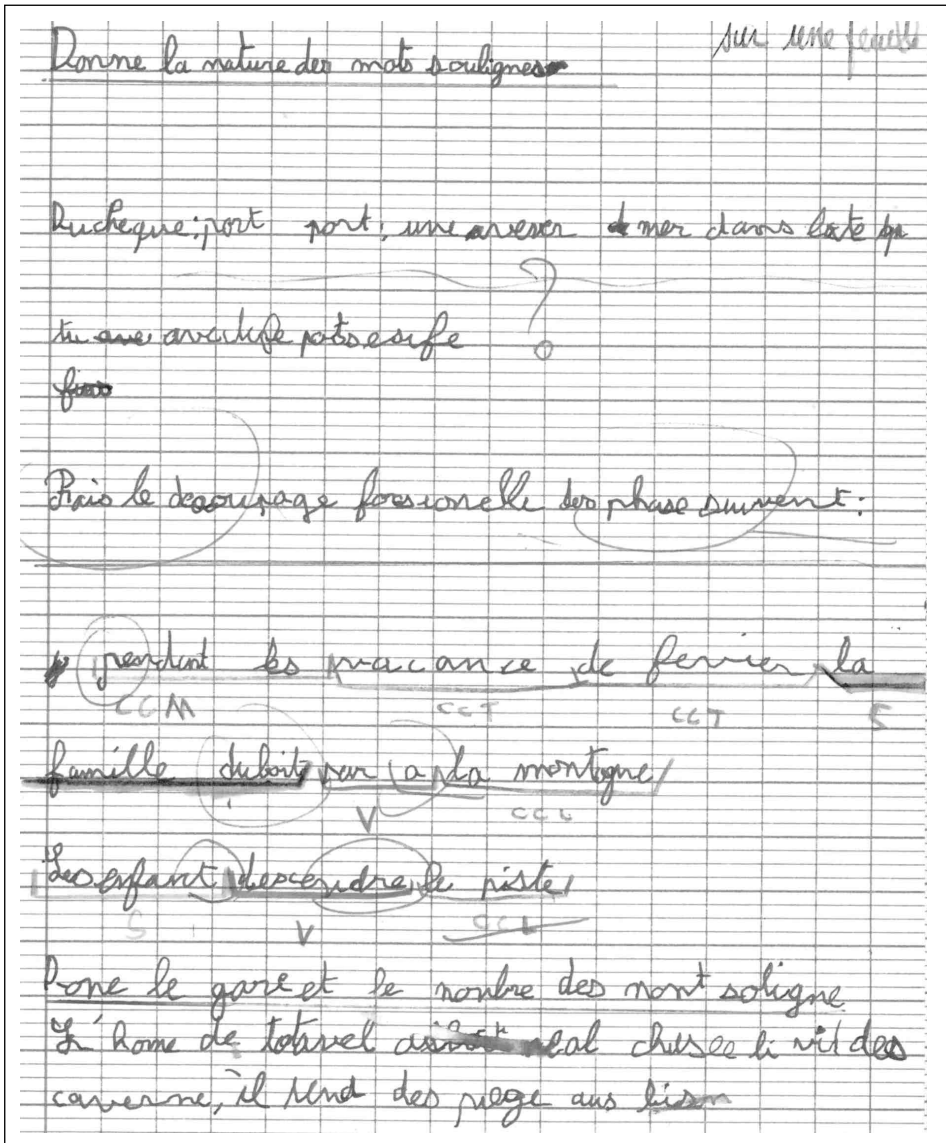 sur une feuille
Donne la nature des mots soulignes
Rucheque; port port; une arever mer dans late
tu avec potsesife
Frais le decoupage fonsionelle des phase suivent:
pendant les vacance de fevrier la
CCM CCT CCT S
famille duboit par a la montagne
V CCL
Les enfant descendre le piste
S V CCL
Done le gare et le nonbre des mont soligne
L'home de totavel chusee li vit des
caverne, il tend des piege aus bison